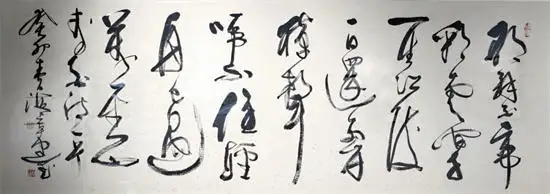 朝辞白帝
彩雲間
千里江陵
一日還兩岸
猿聲
啼不住輕
舟已過
萬重山
李白詩一首
癸卯春